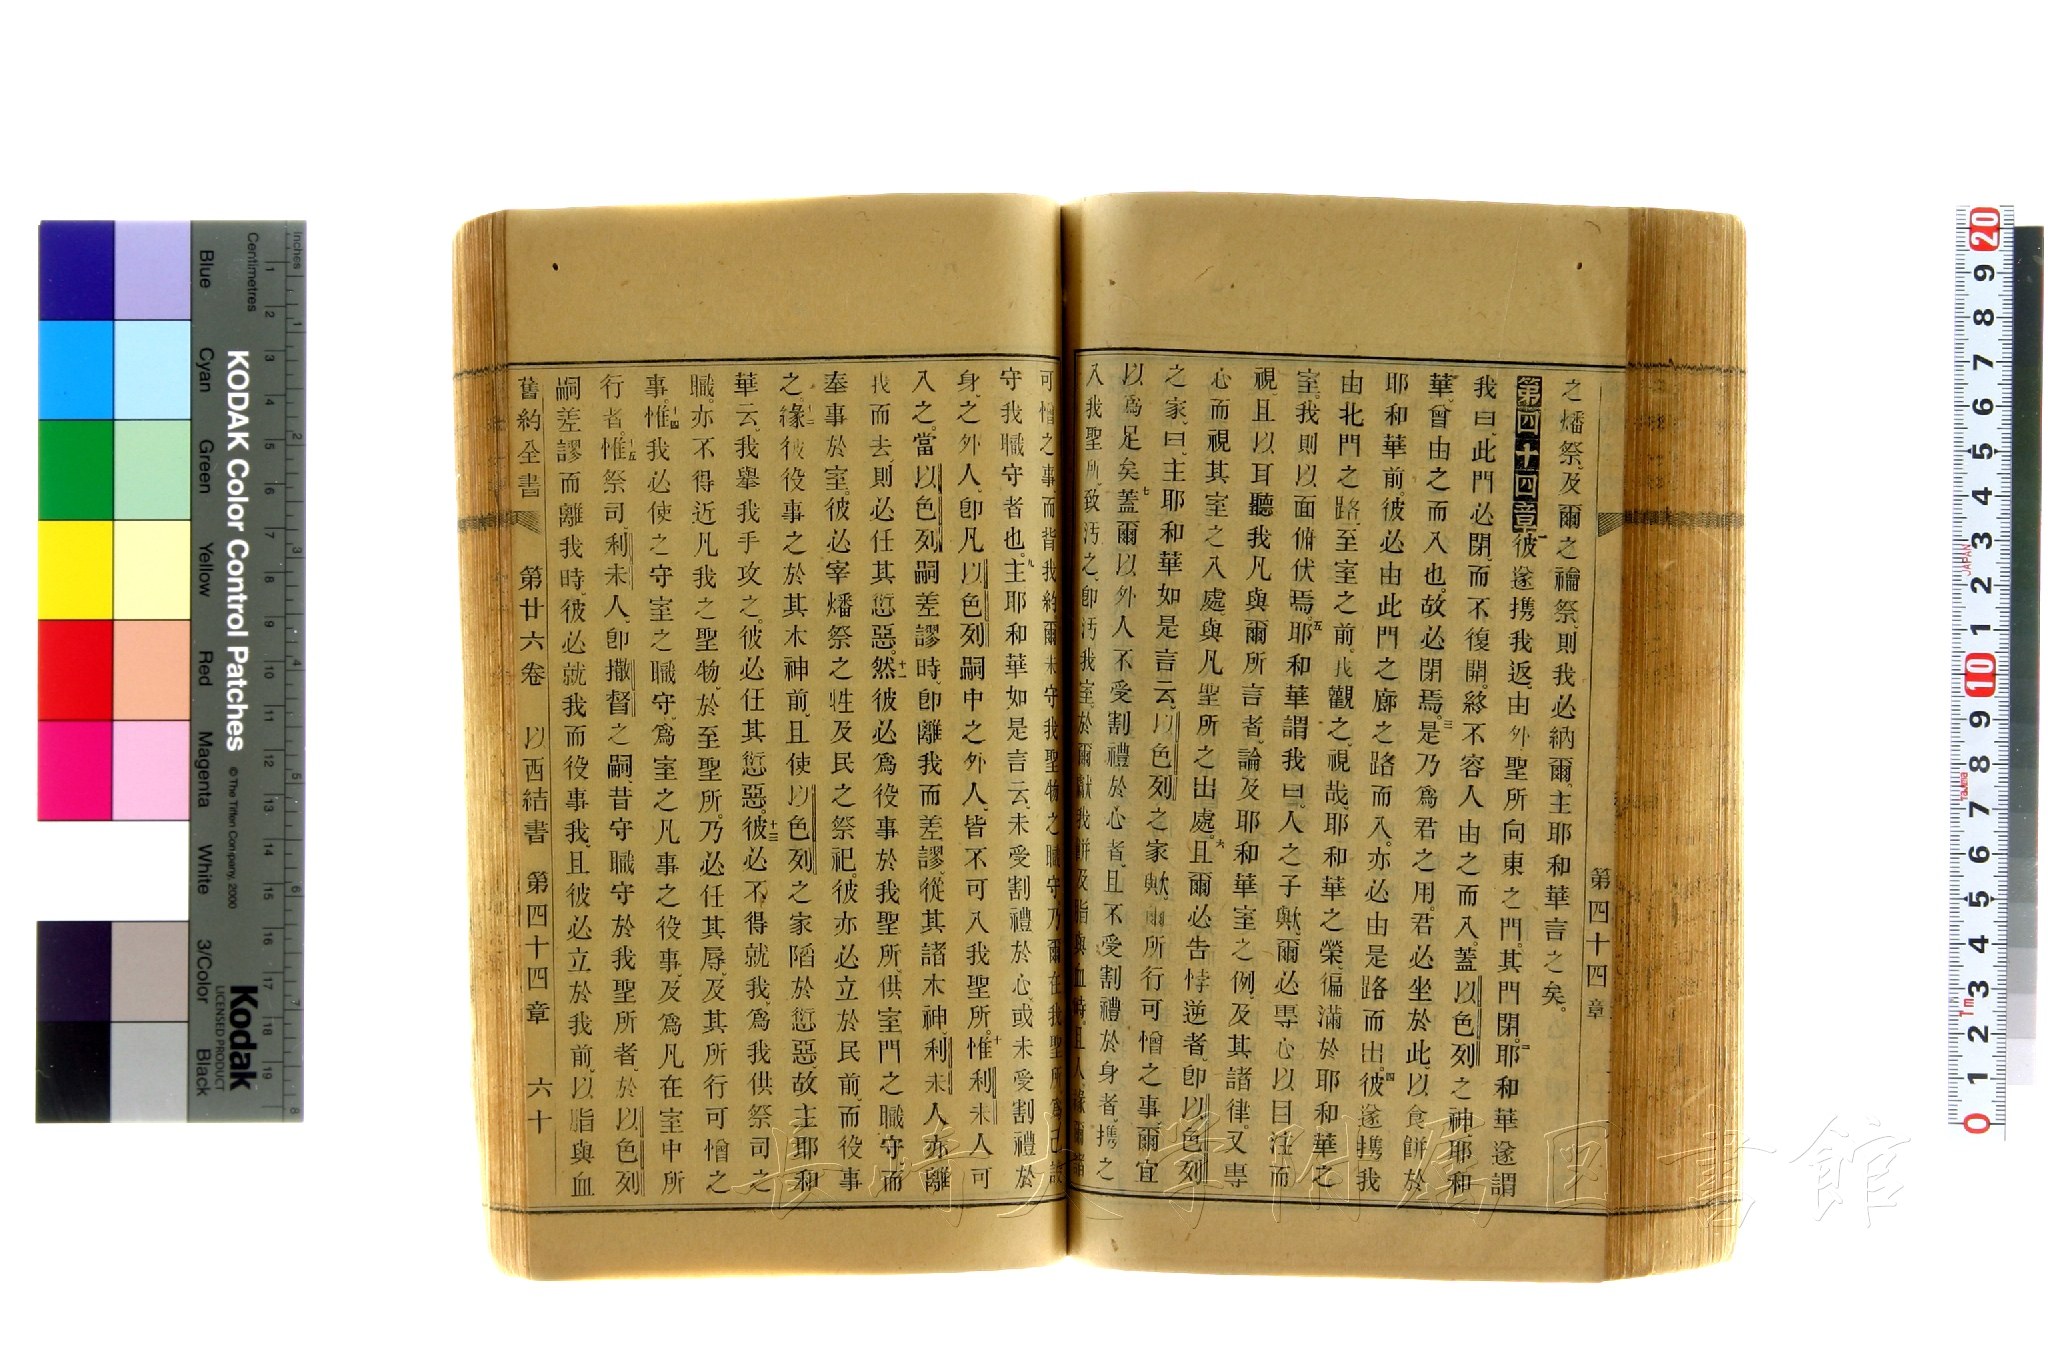 第四十四章
之燔祭、及爾之禴祭、則我必納爾、主耶和華言之矣。
第四十四章 一彼遂携我返、由外聖所向東之門、其門閉。二耶和華遂謂
我曰、此門必閉、而不復開、終不容人由之而入、蓋以色列之神耶和
華、曾由之而入也、故必閉焉。三是乃爲君之用、君必坐於此、以食餅於
耶和華前、彼必由此門之廊之路而入、亦必由是路而出。四彼遂携我
由北門之路、至室之前、我觀之、視哉、耶和華之榮、徧滿於耶和華之
室、我則以面俯伏焉。五耶和華謂我曰、人之子歟、爾必專心以目注而
視、且以耳聽我凡與爾所言者、論及耶和華室之例、及其諸律、又專
心而視其室之入處、與凡聖所之出處。六且爾必告悖逆者、卽以色列
之家、曰、主耶和華如是言云、以色列之家歟、爾所行可憎之事、爾宜
以爲足矣。七蓋爾以外人不受割禮於心者、且不受割禮於身者、携之
入我聖所、致汚之、卽汚我室、於爾獻我餅及脂與血時、且人緣爾諸
可憎之事、而背我約、爾未守我聖物之職守、乃爾在我聖所爲己設
守我職守者也。九主耶和華如是言云、未受割禮於心、或未受割禮於
身、之外人、卽凡以色列嗣中之外人、皆不可入我聖所。十惟利未人可
入之、當以色列嗣差謬時、卽離我而差謬、從其諸木神、利未人亦離
我而去、則必任其愆惡。十一然彼必爲役事於我聖所、供室門之職守、而
奉事於室、彼必宰燔祭之牲、及民之祭祀、彼亦必立於民前、而役事
之。十二緣彼役事之於其木神前、且使以色列之家陷於愆惡、故主耶和
華云、我舉我手攻之、彼必任其愆惡。十三彼必不得就我、爲我供祭司之
職、亦不得近凡我之聖物、於至聖所、乃必任其辱、及其所行可憎之
事。十四惟我必使之守室之職守、爲室之凡事之役事、及爲凡在室中所
行者。十五惟祭司、利未人、卽撒督之嗣、昔守職守於我聖所者、於以色列
嗣差謬而離我時、彼必就我而役事我、且彼必立於我前、以脂與血
舊約全書 第廿六卷 以西結書 第四十四章 六十
KODAK Color Control Patches
© The Tiffen Company, 2000
Kodak
LICENSED PRODUCT
Inches
Centimetres
Blue
Cyan
Green
Yellow
Red
Magenta
White
3/Color
Black
長崎大学附属図書館